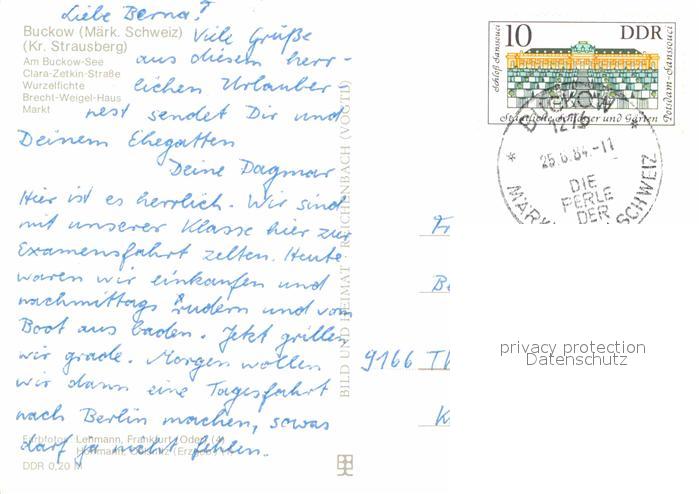 Liebe Berna!
Buckow (Märk. Schweiz)
(Kr. Strausberg)
Am Buckow-See
Clara-Zetkin-Straße
Wurzelfichte
Brecht-Weigel-Haus
Markt
Viele Grüße
aus diesem herr-
lichen Urlauber-
nest sendet Dir und
Deinem Ehegatten
Deine Dagmar
Hier ist es herrlich. Wir sind
mit unserer Klasse hier zur
Examensfahrt zelten. Heute
waren wir einkaufen und
nachmittags rudern und vom
Boot aus baden. Jetzt grillen
wir grade. Morgen wollen
wir dann eine Tagesfahrt
nach Berlin machen, sowas
darf ja nicht fehlen.
Farbfotos: Lehmann, Frankfurt (Oder) (4)
Hoffmann,
DDR 0,20 M
BILD UND HEIMAT · REICHENBACH (VOGTL)
10 DDR
Schloß Sanssouci
Potsdam-Sanssouci
Staatliche Schlösser und Gärten
BUCKOW
25.6.84.-11
DIE
PERLE
DER
MÄRK
SCHWEIZ
9166
privacy protection
Datenschutz